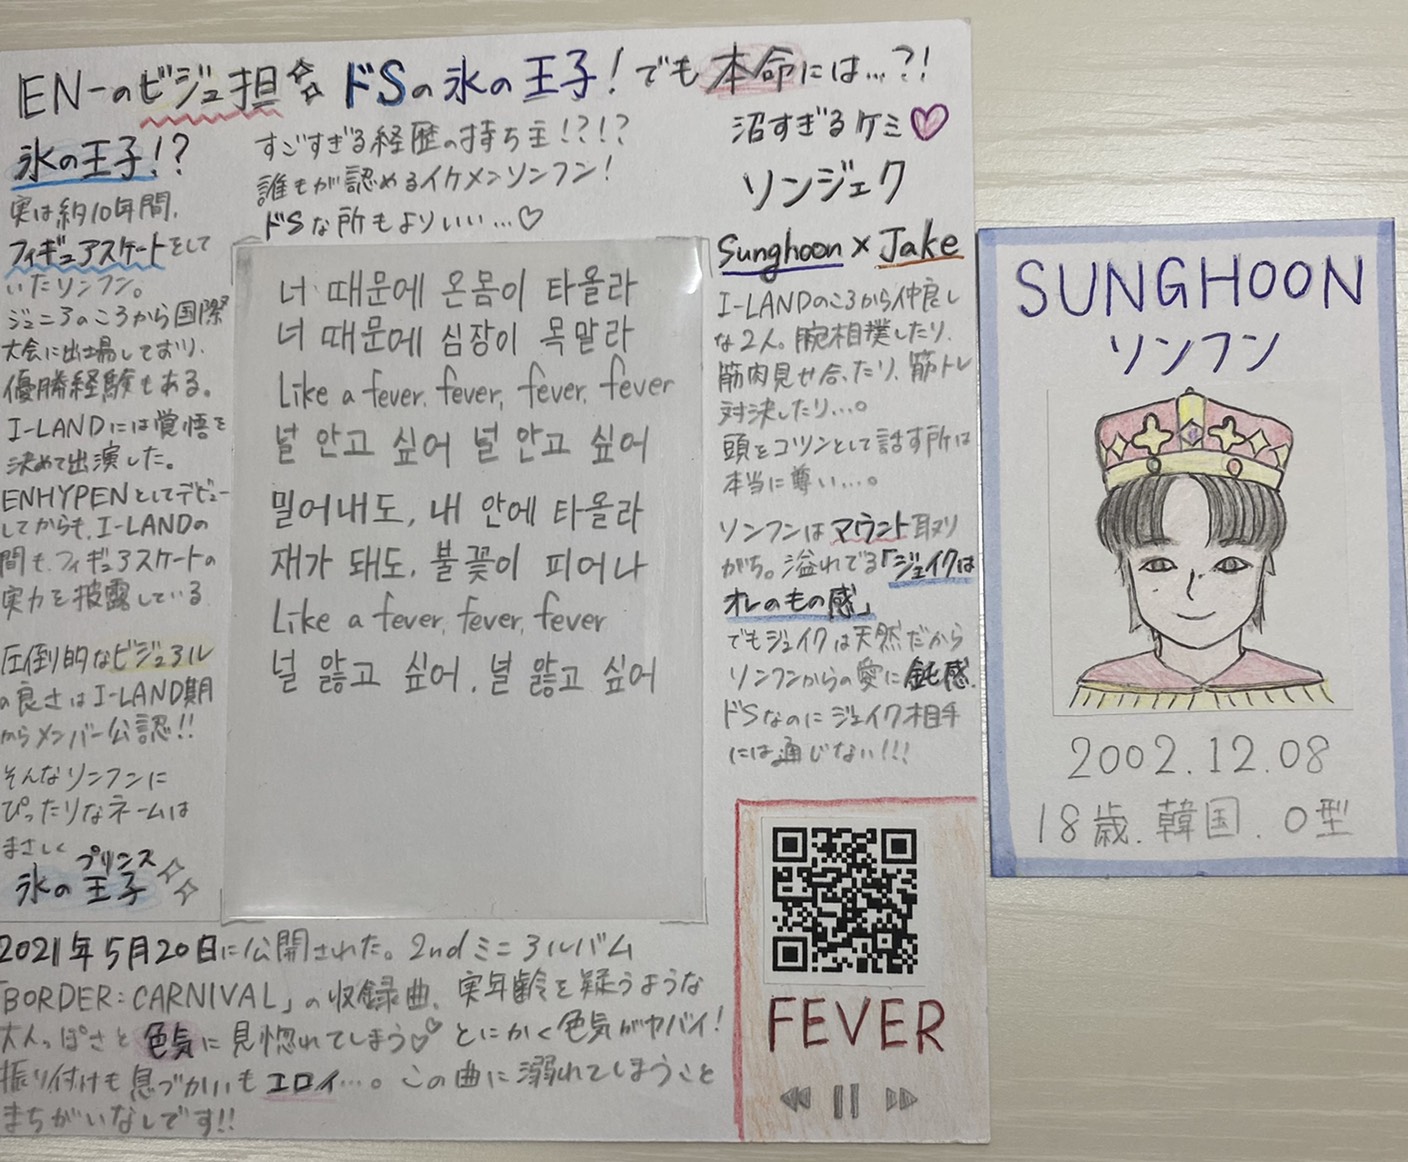 EN-のビジュ担 ドSの氷の王子！でも本命には…?!
氷の王子!?
実は約10年間、
フィギュアスケートをして
いたソンフン。
ジュニアのころから国際
大会に出場しており、
優勝経験もある。
I-LANDには覚悟を
決めて出演した。
ENHYPENとしてデビュー
してからも、I-LANDの
間も、フィギュアスケートの
実力を披露している
圧倒的なビジュアル
の良さはI-LAND期
からメンバー公認!!
そんなソンフンに
ぴったりなネームは
まさしく
プリンス
氷の王子
すごすぎる経歴の持ち主!?!?
誰もが認めるイケメンソンフン！
ドSな所もよりいい…♡
너 때문에 온몸이 타올라
너 때문에 심장이 목말라
Like a fever, fever, fever, fever
널 안고 싶어 널 안고 싶어
밀어내도, 내 안에 타올라
재가 돼도, 불꽃이 피어나
Like a fever, fever, fever
널 앓고 싶어, 널 앓고 싶어
沼すぎるケミ♡
ソンジェク
Sunghoon × Jake
I-LANDのころから仲良し
な2人。腕相撲したり、
筋肉見せ合ったり、筋トレ
対決したり…。
頭をコツンとして話す所は
本当に尊い…。
ソンフンはマウント取り
がち。溢れでる「ジェイクは
オレのもの感」
でもジェイクは天然だから
ソンフンからの愛に鈍感。
ドSなのにジェイク相手
には通じない!!!
2021年5月20日に公開された。2ndミニアルバム
「BORDER:CARNIVAL」の収録曲、実年齢を疑うような
大人っぽさと色気に見惚れてしまう♡ とにかく色気がヤバイ！
振り付けも息づかいもエロイ…。この曲に溺れてしまうこと
まちがいなしです!!
FEVER
SUNGHOON
ソンフン
2002.12.08
18歳、韓国、O型